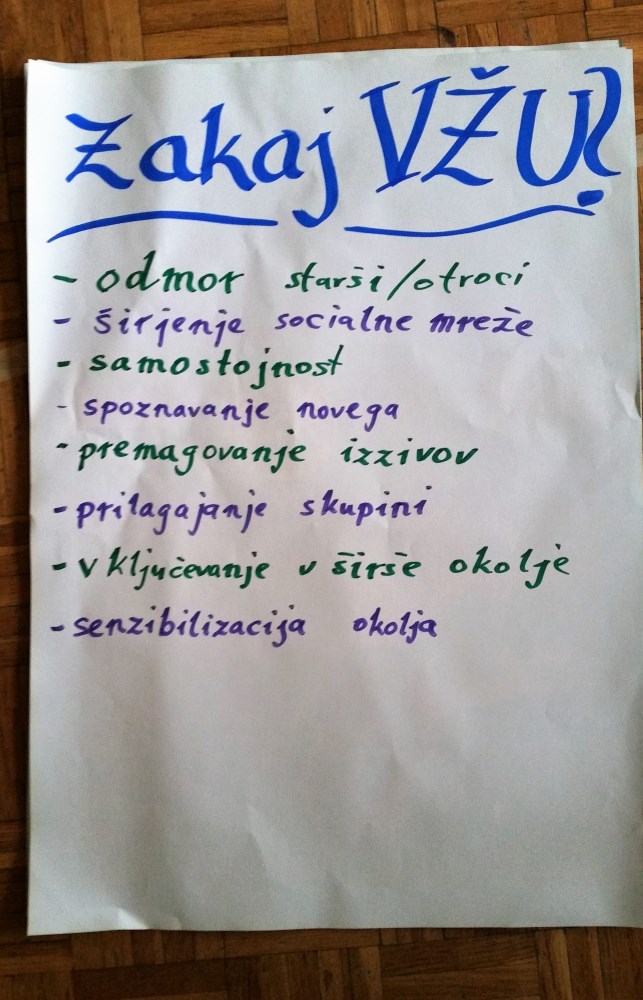 Zakaj VŽU?
- odmor starši/otroci
- širjenje socialne mreže
- samostojnost
- spoznavanje novega
- premagovanje izzivov
- prilagajanje skupini
- vključevanje v širše okolje
- senzibilizacija okolja